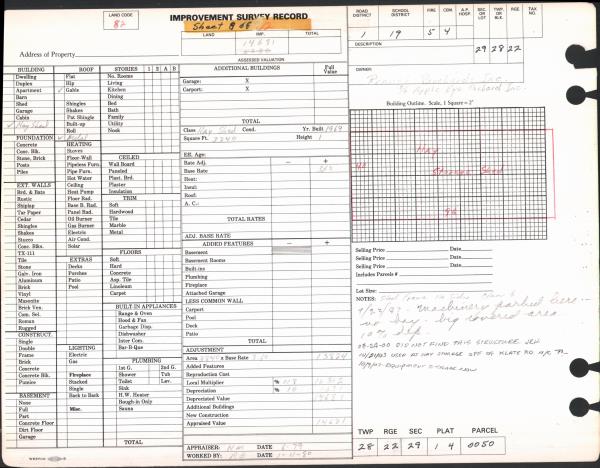 LAND CODE
82
IMPROVEMENT SURVEY RECORD
Sheet 8 of 12
LAND IMP. TOTAL
14681
ASSESSED VALUATION
Address of Property
ROAD DISTRICT SCHOOL DISTRICT FIRE CEM A.P. HOSP. SEC OR LOT TWP. OR BLK. RGE TAX NO.
1 19 5 4 29 28 22
DESCRIPTION
OWNER
BUILDING
Dwelling
Duplex
Apartment
Barn
Shed
Garage
Cabin
Hay Shed
FOUNDATION
Concrete
Conc. Blk.
Stone, Brick
Posts
Piles
EXT. WALLS
Brd. & Bats
Rustic
Shiplap
Tar Paper
Cedar
Shingles
Shakes
Stucco
Conc. Blks.
TX-111
Tile
Stone
Galv. Iron
Aluminum
Brick
Vinyl
Masonite
Brick Ven.
Com. Sel.
Roman
Rugged
CONSTRUCT.
Single
Double
Frame
Brick
Concrete
Pumice
BASEMENT
None
Full
Part
Concrete Floor
Dirt Floor
Garage
ROOF
Flat
Hip
Gable
Shingles
Shakes
Pat. Shingle
Built-up
Roll
Metal
HEATING
Stoves
Floor-Wall
Pipeless Furn.
Pipe Furn.
Hot Water
Heat Pump
Floor Rad.
Base B. Rad.
Panel Rad.
Oil Burner
Gas Burner
Electric
Air Cond.
Solar
EXTRAS
Decks
Porches
Patio
Pool
LIGHTING
Electric
Gas
Fireplace
Stacked
Single
Back to Back
Misc.
STORIES 1 2 A B
No. Rooms
Living
Kitchen
Dining
Bed
Bath
Family
Utility
Nook
CEILED
Wall Board
Paneled
Plast. Brd.
Ceiling
Plaster
Insulation
TRIM
Soft
Hardwood
Tile
Marble
Metal
FLOORS
Soft
Hard
Concrete
Asp. Tile
Linoleum
Carpet
BUILT-IN APPLIANCES
Range & Oven
Hood & Fan
Garbage Disp.
Dishwasher
Inter Com.
Bar-B-Que
PLUMBING
1st G. 2nd G.
Shower Tub
Toilet Lav.
Sink
H.W. Heater
Rough-in Only
Sauna
TOTAL
ADDITIONAL BUILDINGS Full Value
Garage: X
Carport: X
TOTAL
Class Hay Shed Cond. Yr. Built 1969
Square Ft. 3840 Height 1
Eff. Age:
Rate Adj. - +
Base Rate
Heat:
Insul:
Roof:
A. C.:
TOTAL RATES
ADJ. BASE RATE
ADDED FEATURES - +
Basement
Basement Rooms
Built-ins
Plumbing
Fireplace
Attached Garage
LESS COMMON WALL
Carport
Pool
Deck
Patio
TOTAL
ADJUSTMENT
Area 3840 x Base Rate 3.60 13824
Added Features
Reproduction Cost
Local Multiplier % 118 16312
Depreciation % 10
Depreciated Value 14681
Additional Buildings
New Construction
Appraised Value 14681
APPRAISER: DATE 6-79
WORKED BY: DATE
Building Outline. Scale, 1 Square = 2'
Hay
Storage Shed
40
96
Selling Price Date
Selling Price Date
Selling Price Date
Includes Parcels #
Lot Size:
NOTES:
machinery parked here
no hay - big covered area
10% dep.
08-22-00 DID NOT FIND THIS STRUCTURE JEH
TWP RGE SEC PLAT PARCEL
28 22 29 1 4 0050